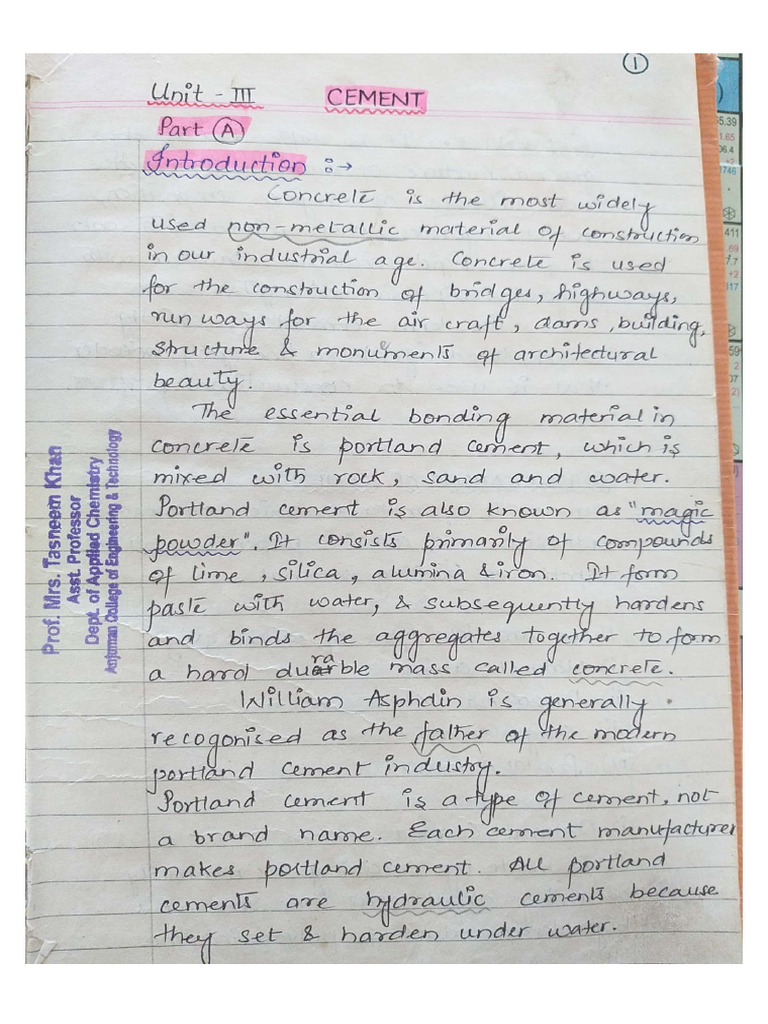 1
Unit - III CEMENT
Part A
Introduction :→
Concrete is the most widely
used non-metallic material of construction
in our industrial age. Concrete is used
for the construction of bridges, highways,
run ways for the air craft, dams, building,
structure & monuments of architectural
beauty.
The essential bonding material in
concrete is portland cement, which is
mixed with rock, sand and water.
Portland cement is also known as "magic
powder". It consists primarily of compounds
of lime, silica, alumina & iron. It form
paste with water, & subsequently hardens
and binds the aggregates together to form
a hard durable mass called concrete.
William Asphdin is generally
recogonised as the father of the modern
portland cement industry.
Portland cement is a type of cement, not
a brand name. Each cement manufacturer
makes portland cement. All portland
cements are hydraulic cements because
they set & harden under water.
Prof. Mrs. Tasneem Khan
Asst. Professor
Dept. of Applied Chemistry
Anjuman College of Engineering & Technology
65.39
1.65
06.4
+2
1746
411
.69
7.7
+2
317
59
2
07
2)